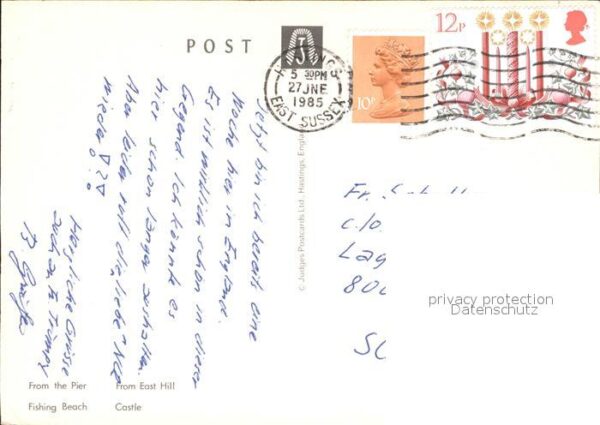 POST
HASTINGS
5 30PM
27 JNE
1985
EAST SUSSEX
10P
12P
Jetzt bin ich bereits eine
Woche hier in England.
Es ist wirklich schön in dieser
Gegend. Ich könnte es
hier schon länger aushalten.
Aber leider ruft die liebe
wieder
Herzliche Grüsse
auch an
© Judges Postcards Ltd., Hastings, England
Fr.
c/o
Lag
800
privacy protection
Datenschutz
From the Pier From East Hill
Fishing Beach Castle